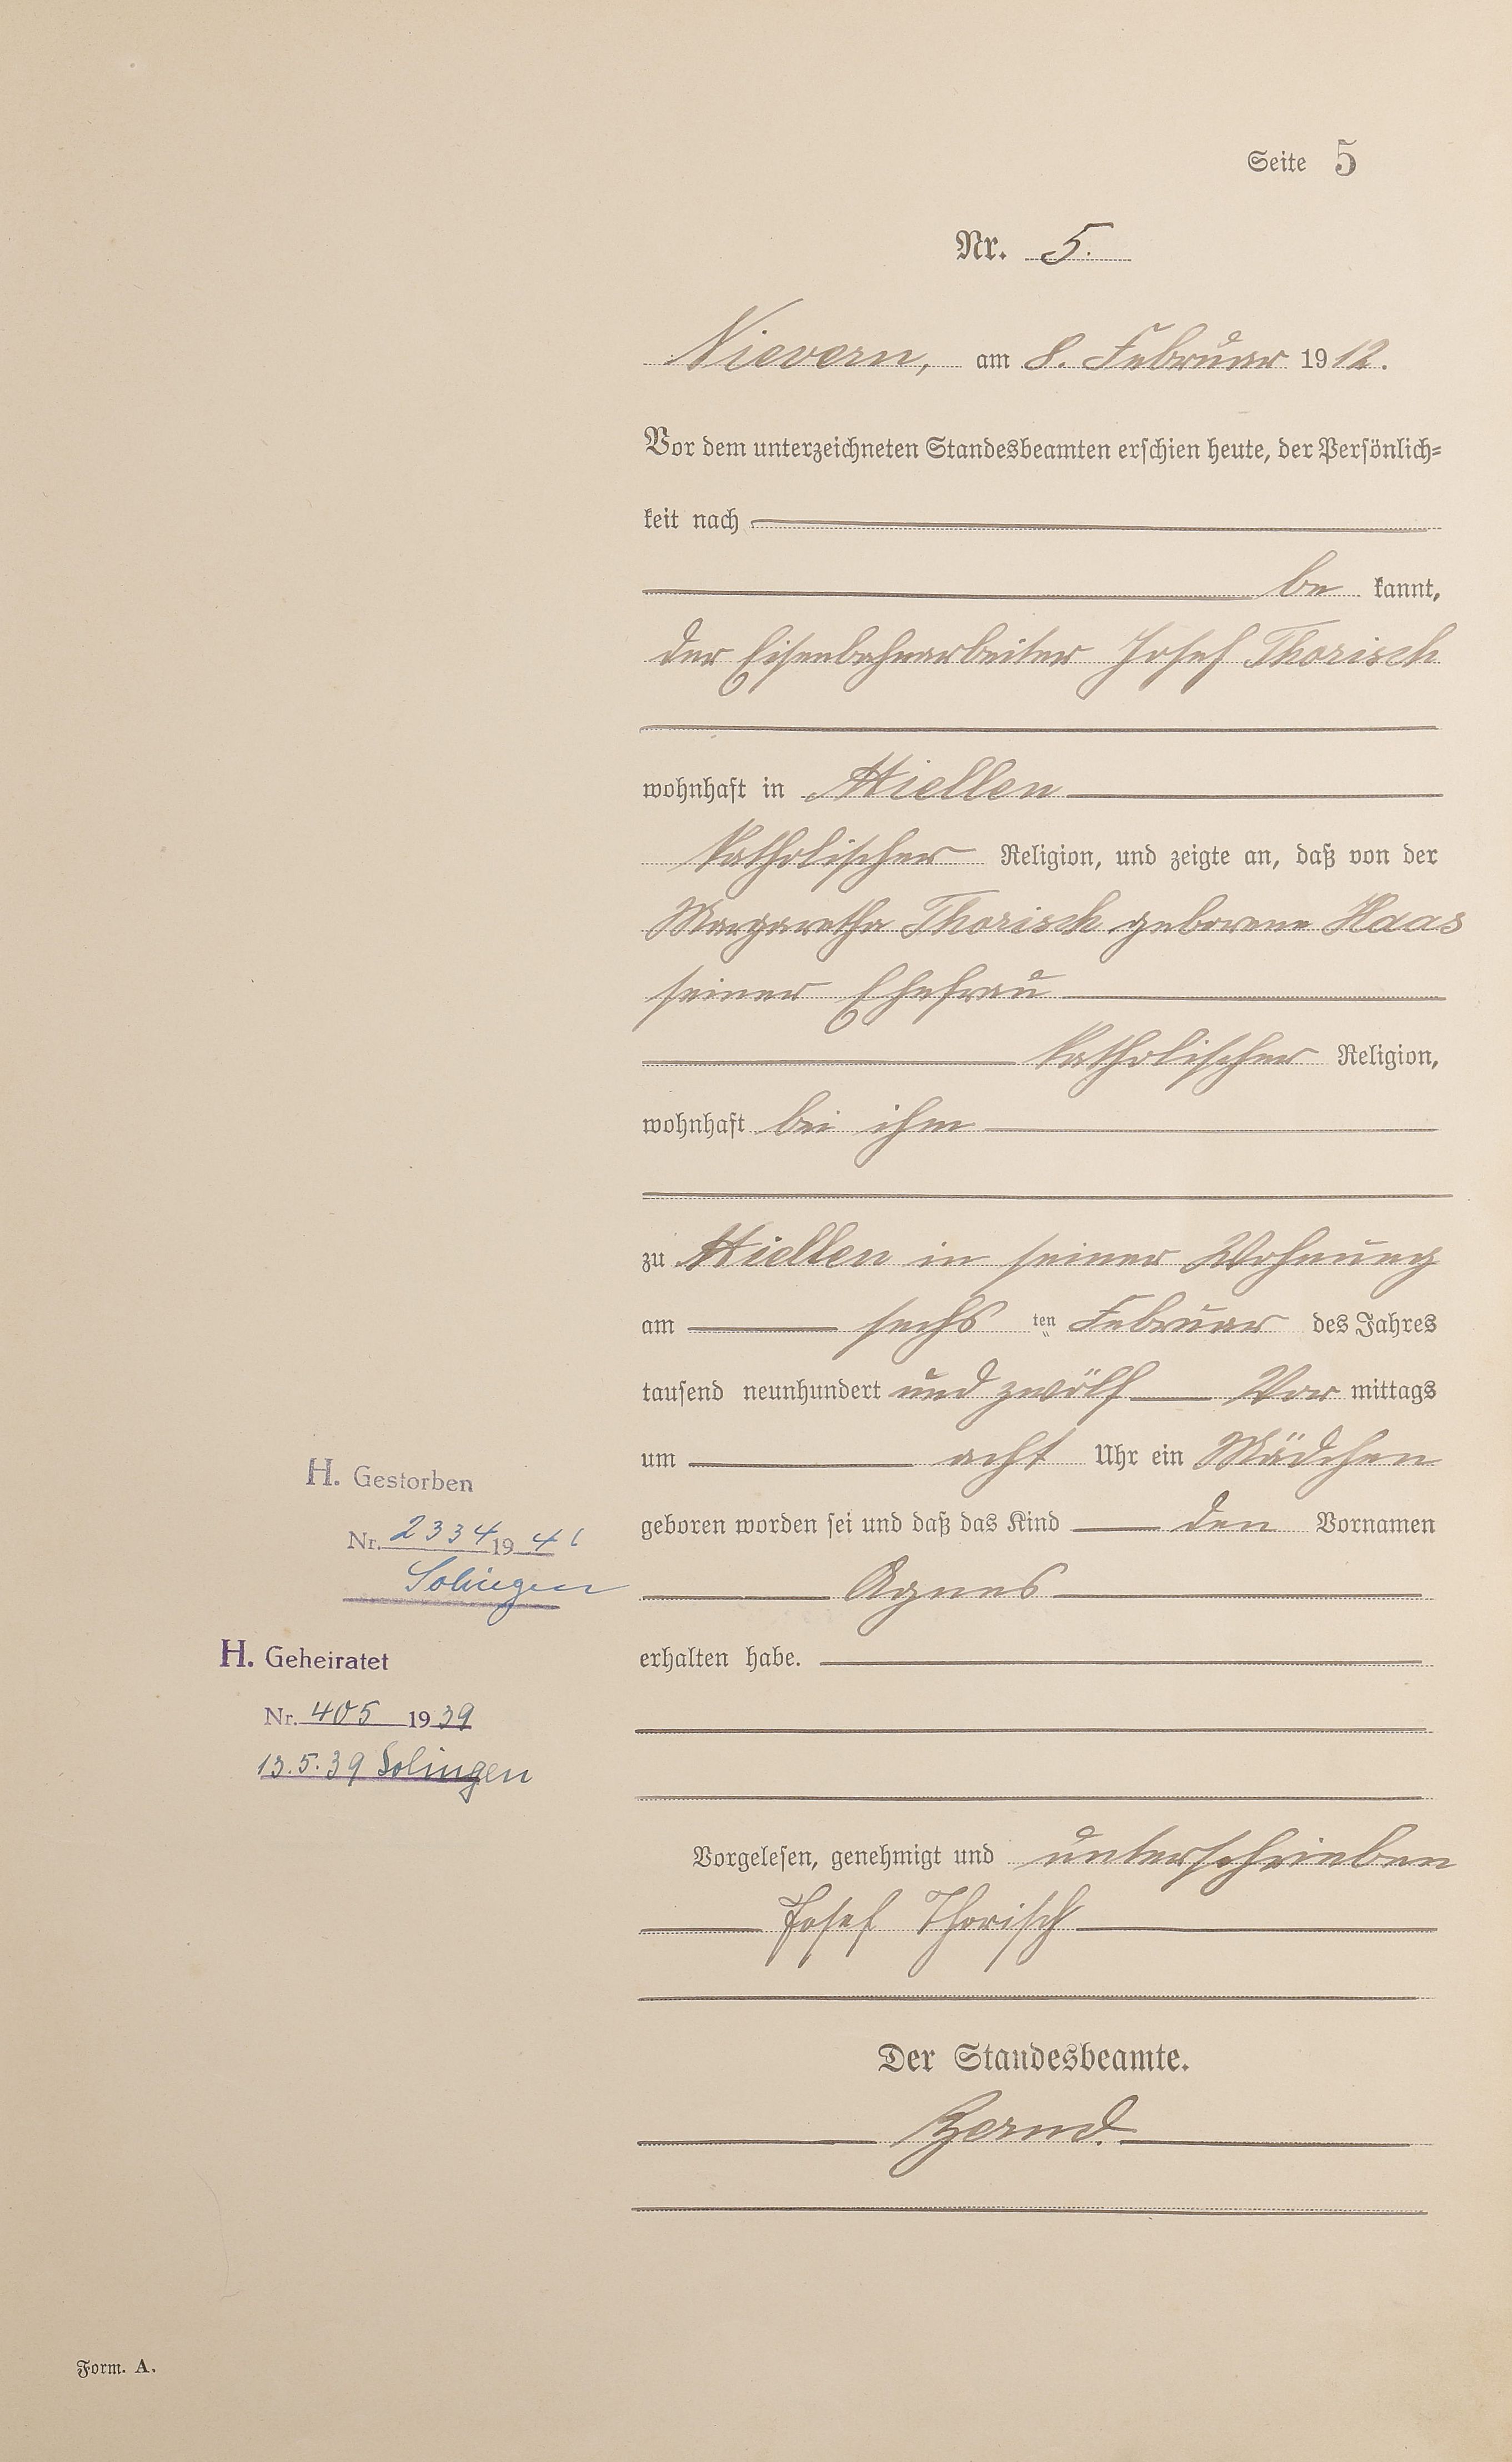 Seite 5
Nr. 5.
Nievern, am 8. Februar 1912.
Vor dem unterzeichneten Standesbeamten erschien heute, der Persönlich=
keit nach
be kannt,
der Eisenbahnarbeiter Josef Thorisch
wohnhaft in Miellen
katholischer Religion, und zeigte an, daß von der
Margaretha Thorisch geborene Haas
seiner Ehefrau
katholischer Religion,
wohnhaft bei ihm
zu Miellen in seiner Wohnung
am sechs ten Februar des Jahres
tausend neunhundert und zwölf Vor mittags
um acht Uhr ein Mädchen
geboren worden sei und daß das Kind den Vornamen
Agnes
erhalten habe.
H. Gestorben
Nr. 2334 1941
Solingen
H. Geheiratet
Nr. 405 1939
13.5.39 Solingen
Vorgelesen, genehmigt und unterschrieben
Josef Thorisch
Der Standesbeamte.
Form. A.